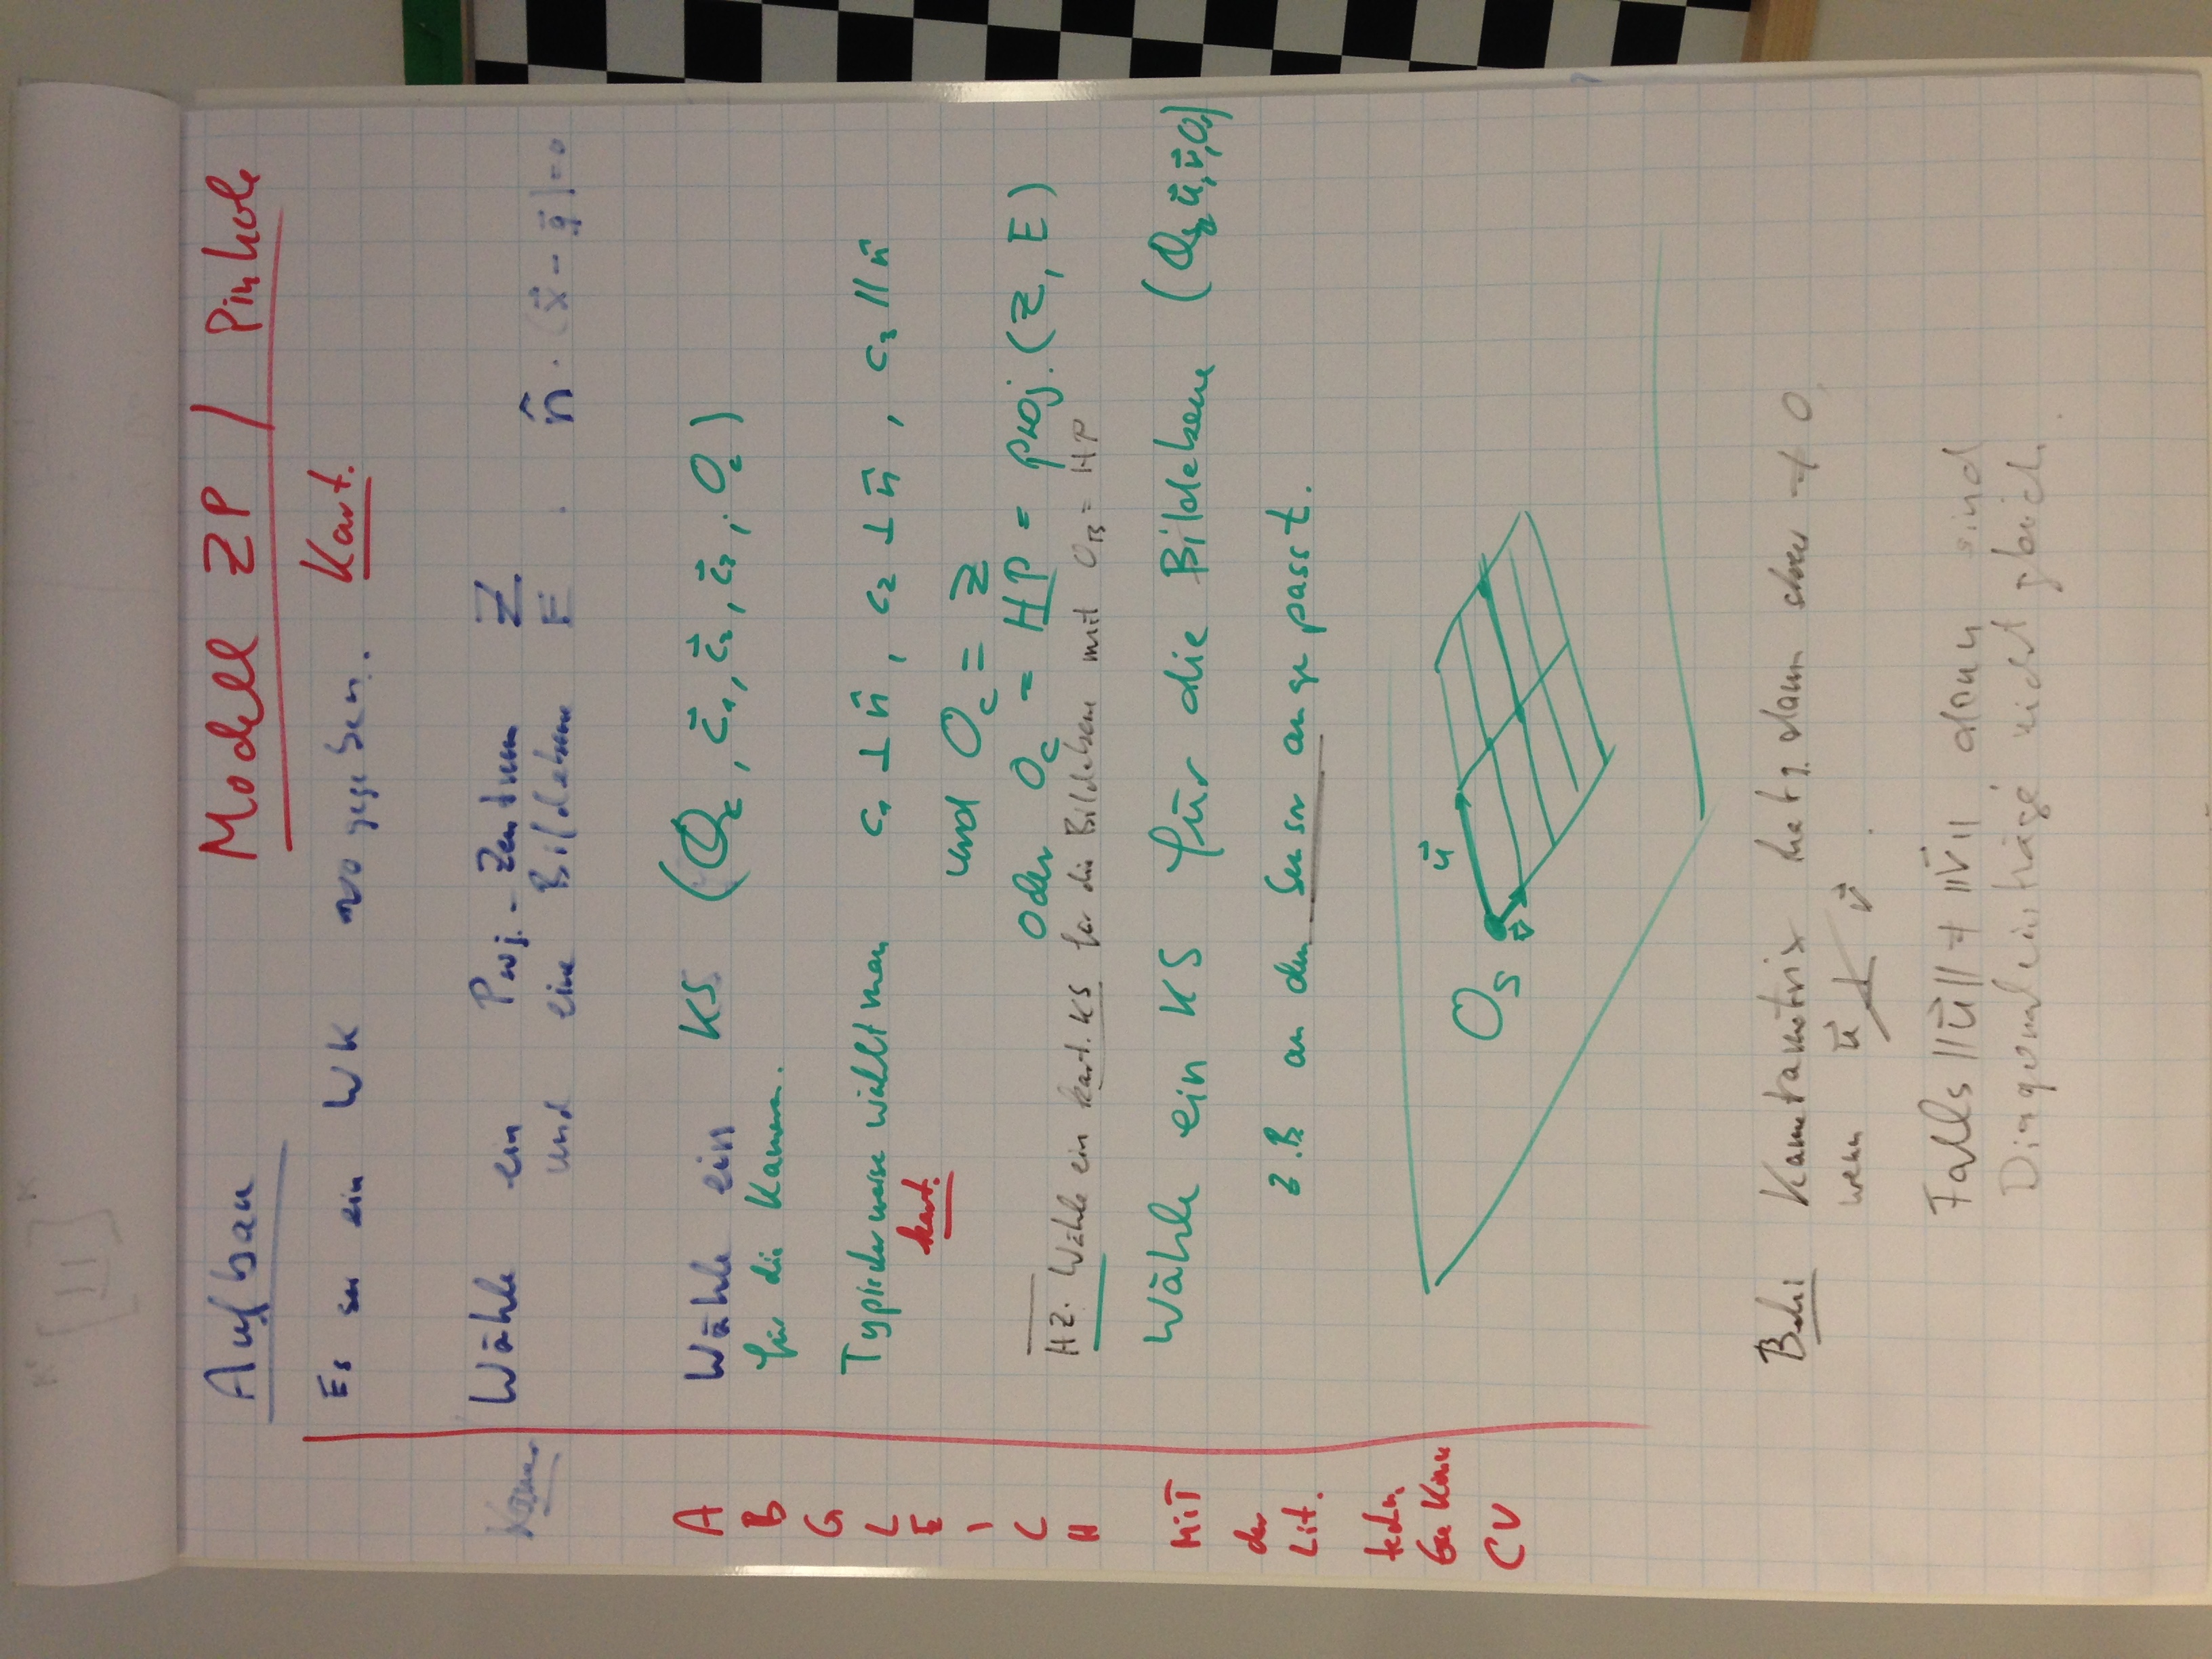 Aufbau Modell ZP / Pinhole
Es sei ein WK vogegeben. Kart.
Wähle ein Proj.-Zentrum Z
und eine Bildebene E n̂ · (x⃗ - q⃗) = 0
Wähle ein KS (O_c, c⃗₁, c⃗₂, c⃗₃, O_c)
für die Kamera.
Typischerweise wählt man c₁ ⊥ n̂, c₂ ⊥ n̂, c₃ ∥ n̂
kart.
und O_c = Z
oder O_c = HP = proj. (Z, E)
HZ: Wähle ein kart. KS für die Bildebene mit O_B = HP
Wähle ein KS für die Bildebene (O_s, u⃗, v⃗, O_s)
z.B. an den Sensor angepasst.
O_s u⃗
v⃗
Kamera
A
B
G
L
E
I
C
H
MiT
der
Lit.
techn.
CV
Kameramatrix hat dann skew ≠ 0,
wenn u⃗ ⊥̸ v⃗.
Falls ||u⃗|| ≠ ||v⃗||, dann sind
Diagonaleinträge nicht gleich.